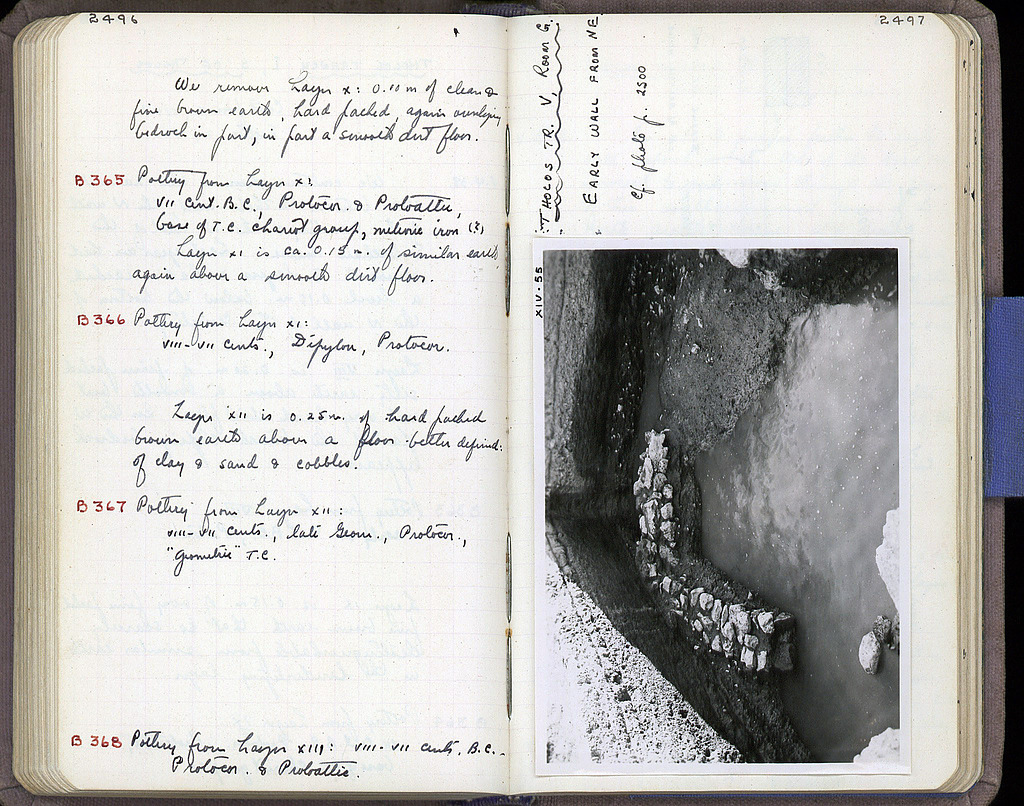 2496
We remove Layer X: 0.10 m of clean &
fine brown earth, hard packed, again overlying
bedrock in part, in part a smooth dirt floor.
B 365 Pottery from Layer X:
VII cent. B.C., Protocor. & Protoattic,
base of T.C. chariot group, meteoric iron (?)
Layer XI is ca. 0.15 m. of similar earth,
again above a smooth dirt floor.
B 366 Pottery from Layer XI:
VIII-VII cents., Dipylon, Protocor.
Layer XII is 0.25 m. of hard packed
brown earth above a floor better defined:
of clay & sand & cobbles.
B 367 Pottery from Layer XII:
VIII-VII cents., late Geom., Protocor.,
"Geometric" T.C.
B 368 Pottery from Layer XIII: VIII-VII cents. B.C.
Protocor. & Protoattic.
2497
THOLOS TR. V, ROOM G.
EARLY WALL FROM NE
cf. photo p. 2500
XIV-55